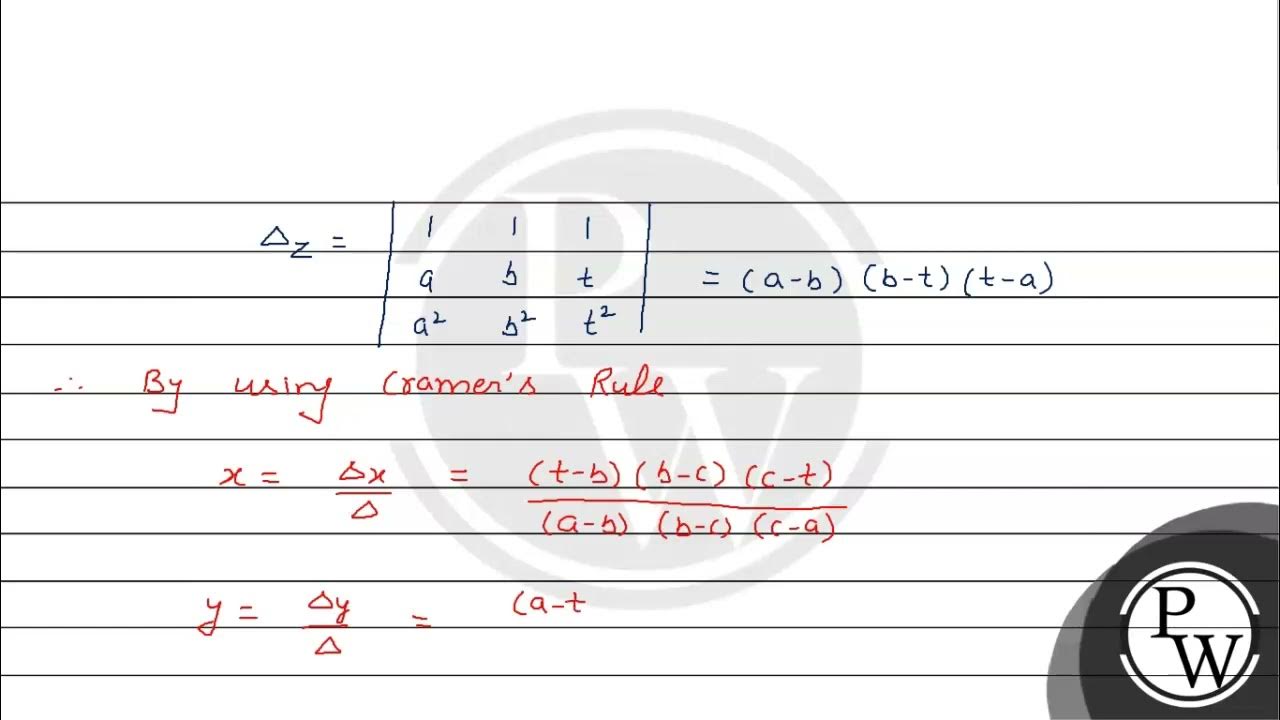 Δz = | 1 1 1 |
| a b t | = (a-b) (b-t) (t-a)
| a² b² t² |
∴ By using Cramer's Rule
x = Δx/Δ = (t-b) (b-c) (c-t) / (a-b) (b-c) (c-a)
y = Δy/Δ = (a-t
PW
PW